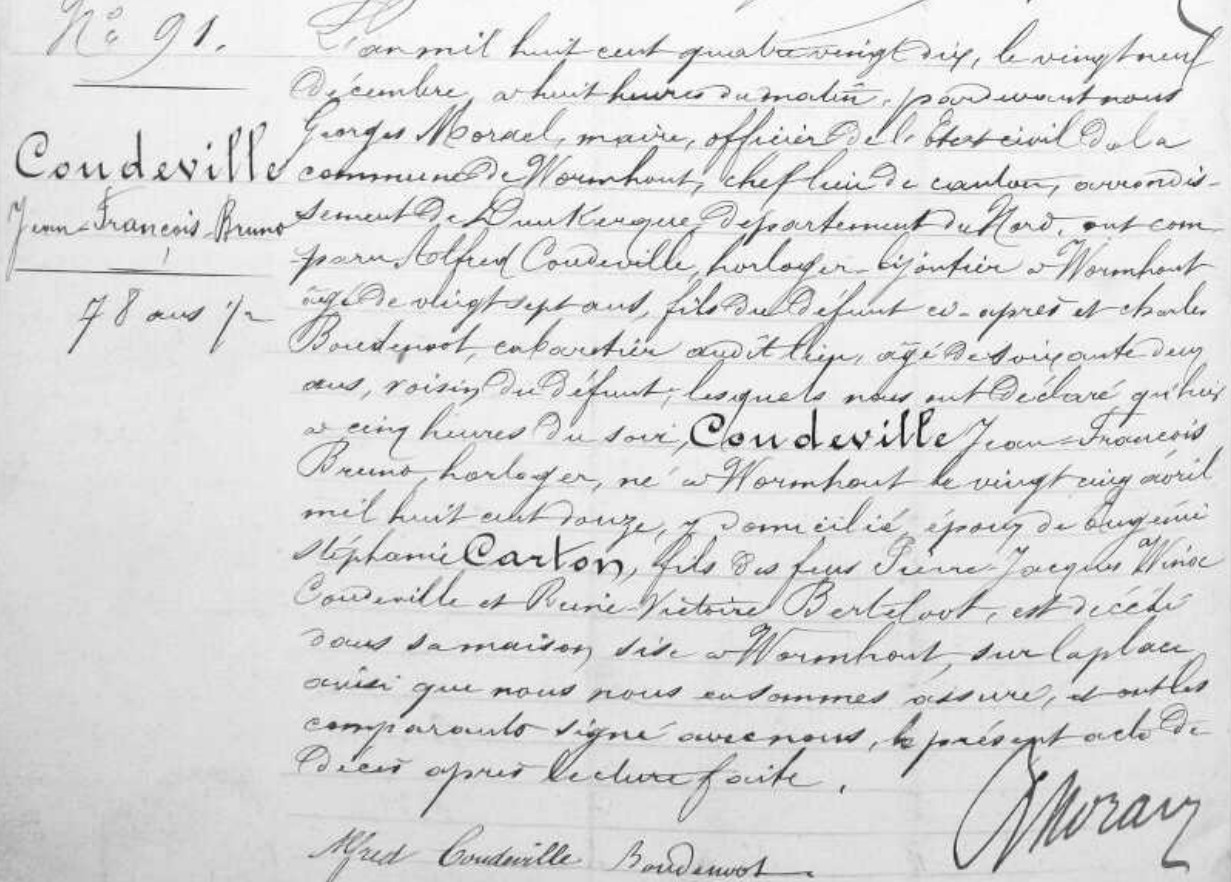 No 91.
Coudeville
Jean-François-Bruno
78 ans 1/2
L'an mil huit cent quatre vingt dix, le vingt neuf
décembre, à huit heures du matin, pardevant nous
Georges Morael, maire, officier de l'État civil de la
commune de Wormhout, chef lieu de canton, arrondis-
sement de Dunkerque, département du Nord, ont com-
paru Alfred Coudeville, horloger-bijoutier à Wormhout
âgé de vingt sept ans, fils du défunt ci-après et Charles
Boudenoot, cabaretier audit lieu, âgé de soixante deux
ans, voisin du défunt; lesquels nous ont déclaré qu'hier
à cinq heures du soir, Coudeville Jean-François
Bruno, horloger, né à Wormhout le vingt cinq avril
mil huit cent douze, y domicilié, époux de Eugénie
Stéphanie Carton, fils des feus Pierre-Jacques Winoc
Coudeville et Reine-Victoire Berteloot, est décédé
dans sa maison sise à Wormhout, sur la place,
ainsi que nous nous en sommes assuré, et ont les
comparants signé avec nous, le présent acte de
décès après lecture faite.
Alfred Coudeville Boudenoot